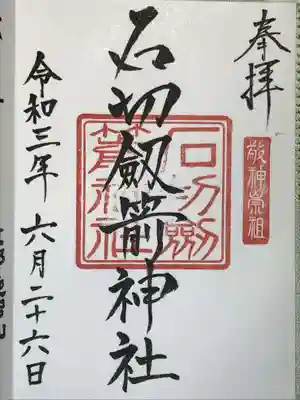 奉拝
敬神崇祖
石切劔箭神社
石切劔箭神社
令和三年六月二十六日